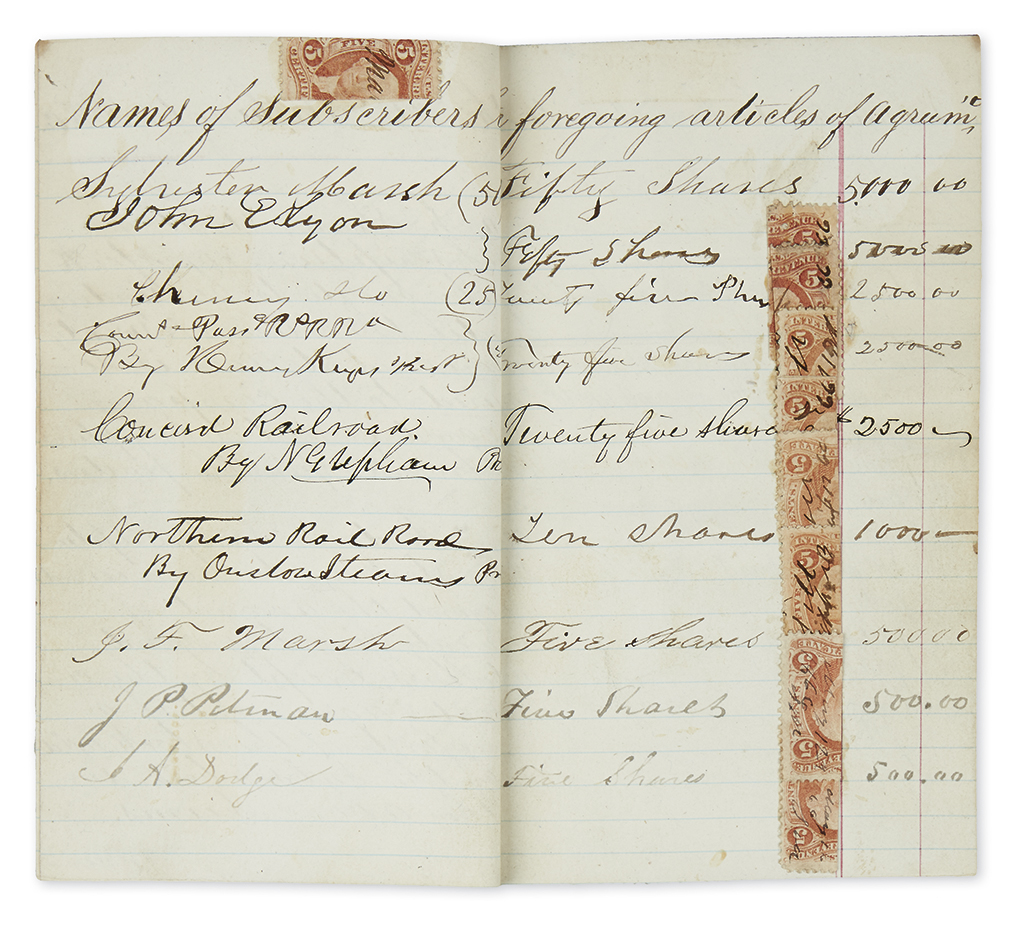 FIVE
5 5
Names of Subscribers foregoing articles of Agrum't
Sylvester Marsh (50 Fifty Shares 5,000 00
John Edyon
} Fifty Shares 5000 00
Cheney &Co (25 Twenty five Shar 2500.00
Connt & Pass R RR Co
By Henry Keyes Prest } Twenty five Shares 2500.00
Concord Railroad Twenty five shares $2500
By N G Upham Pr
Northern Rail Road Ten Shares 1000
By Onslow Stearns Pr
J. F. Marsh Five Shares 500.00
J P. Pitman Five Shares 500.00
J A. Dodge Five Shares 500.00